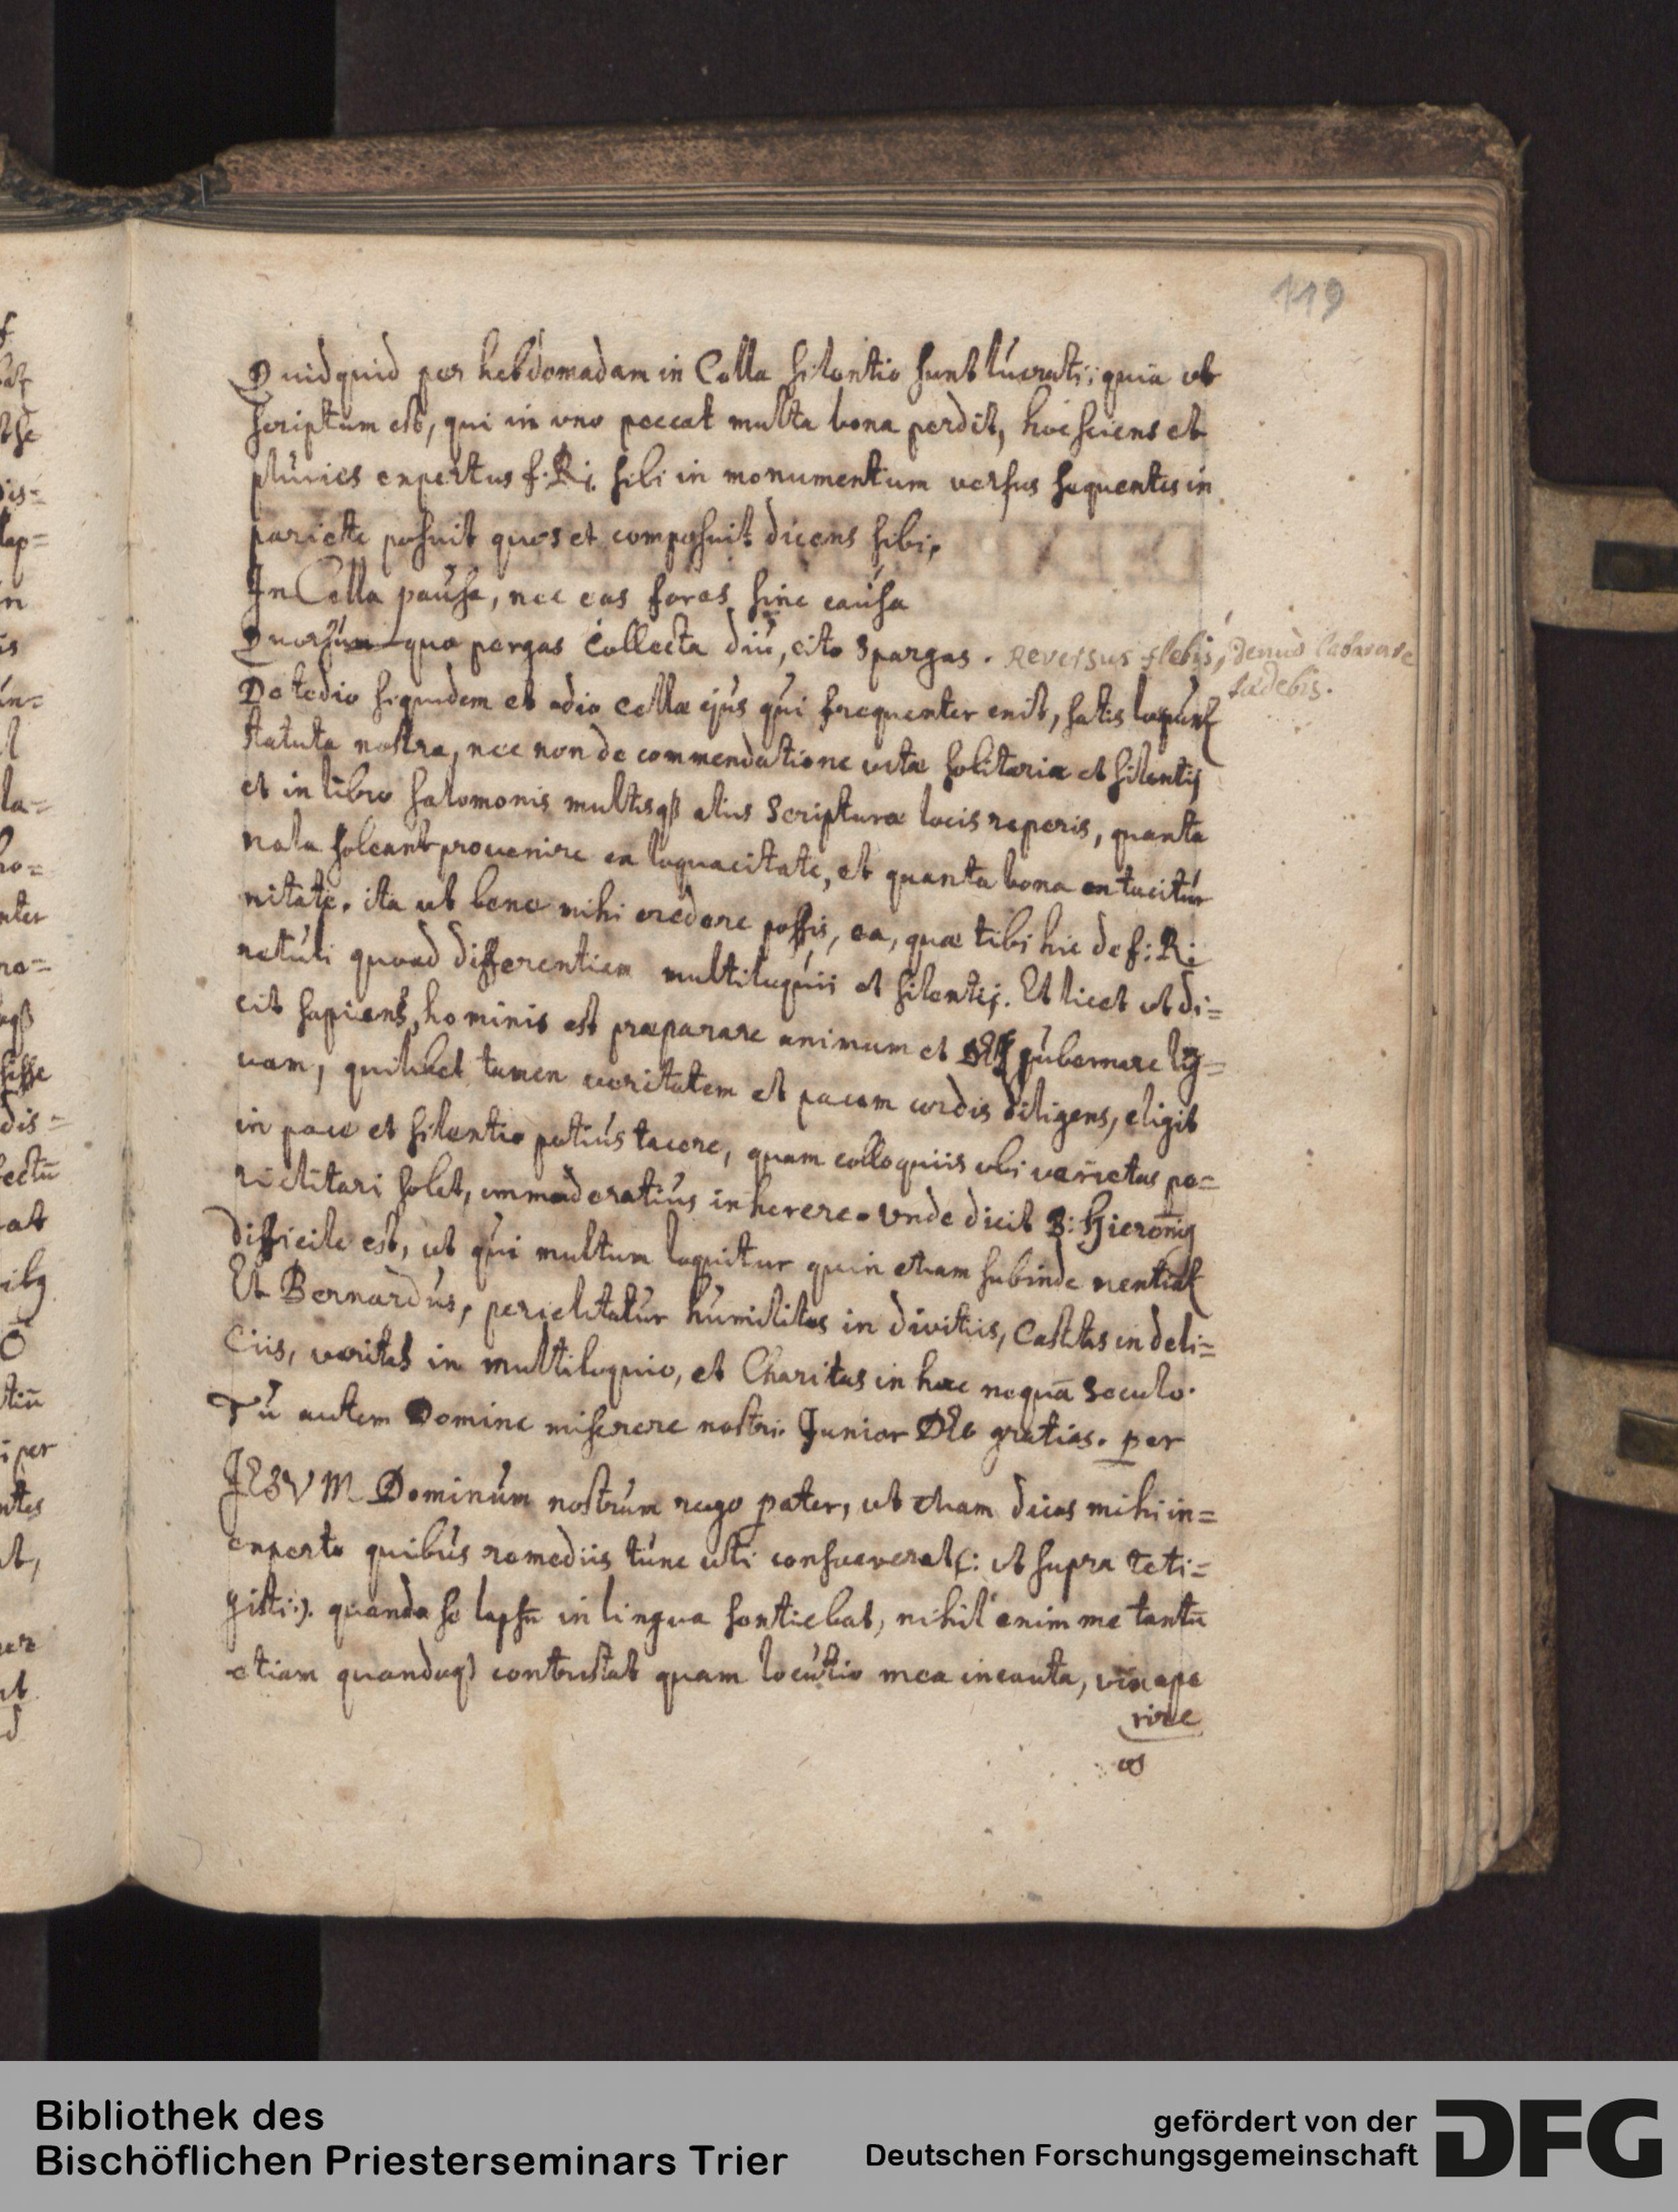 119
Quidquid per hebdomadam in Cella silentio sunt lucrati; quia ut
scriptum est, qui in uno peccat multa bona perdit, hoc sciens et
pluries expertus f: R: sibi in monumentum versus sequentes in
pariete posuit quos et composuit dicens sibi,
In Cella pausa, nec eas foras sine causa
Quorsum quo pergas Collecta diu, cito Spargas. Reversus flebis, denuo laborare
tædebis.
De tedio siquidem et odio cellæ ejus qui frequenter exit, satis loqunt
statuta nostra, nec non de commendatione vitæ solitariæ et silentij
et in libro Salomonis multisqß aliis Scripturæ locis reperis, quanta
mala soleant provenire ex loquacitate, et quanta bona ex tacitur
nitate. ita ut bene mihi credere possis, ea, quæ tibi hic de f: R:
retuli quoad differentiam multiloquii et silentij. Et licet ut di=
cit sapiens, hominis est præparare animum et gubernare lig=
uam, quilibet tamen veritatem et pacem cordis diligens, eligit
in pace et silentio potius tacere, quam colloquiis ubi varietas pe=
riclitari solet, immoderatius inherere. Unde dicit B: Hieronig
difficile est, ut qui multum loquitur quin etiam subinde mentiat
Et Bernardus, periclitatur humilitas in divitiis, Castitas in deli=
ciis, veritas in multiloquio, et Charitas in hoc nequā Seculo.
Tu autem Domine miserere nostri. Junior DEo gratias. per
JESVM Dominum nostrum rogo pater, ut etiam dicas mihi in=
experto quibus remediis tunc uti consueverat (: ut supra teti=
gisti:). quando se lapsū in lingua sentiebat, nihil enim me tantū
etiam quandoqß contristat quam locutio mea incauta, vix ape
rire
os
Bibliothek des
Bischöflichen Priesterseminars Trier
gefördert von der
Deutschen Forschungsgemeinschaft
DFG